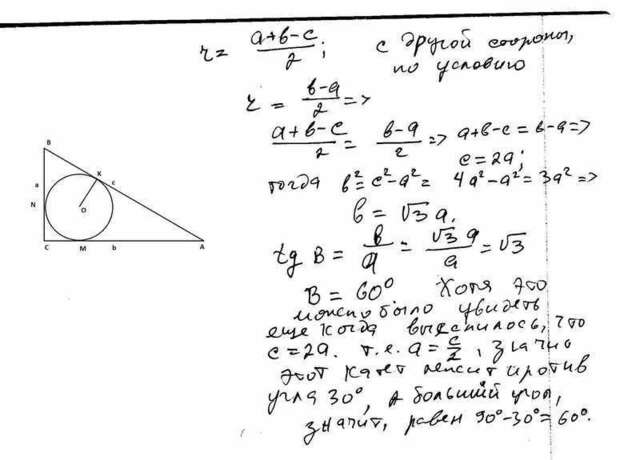 r = (a+b-c)/2; с другой стороны,
по условию
r = (b-a)/2 =>
(a+b-c)/2 = (b-a)/2 => a+b-c = b-a =>
c = 2a;
тогда b² = c²-a² = 4a²-a² = 3a² =>
b = √3 a.
tg B = b/a = √3 a/a = √3
B = 60° Хотя это
можно было увидеть
еще когда выяснилось, что
c = 2a. т.е. a = c/2, значит
этот катет лежит против
угла 30°, а больший угол,
значит, равен 90°-30°=60°.
B
K
a
c
N
O
C
M
b
A